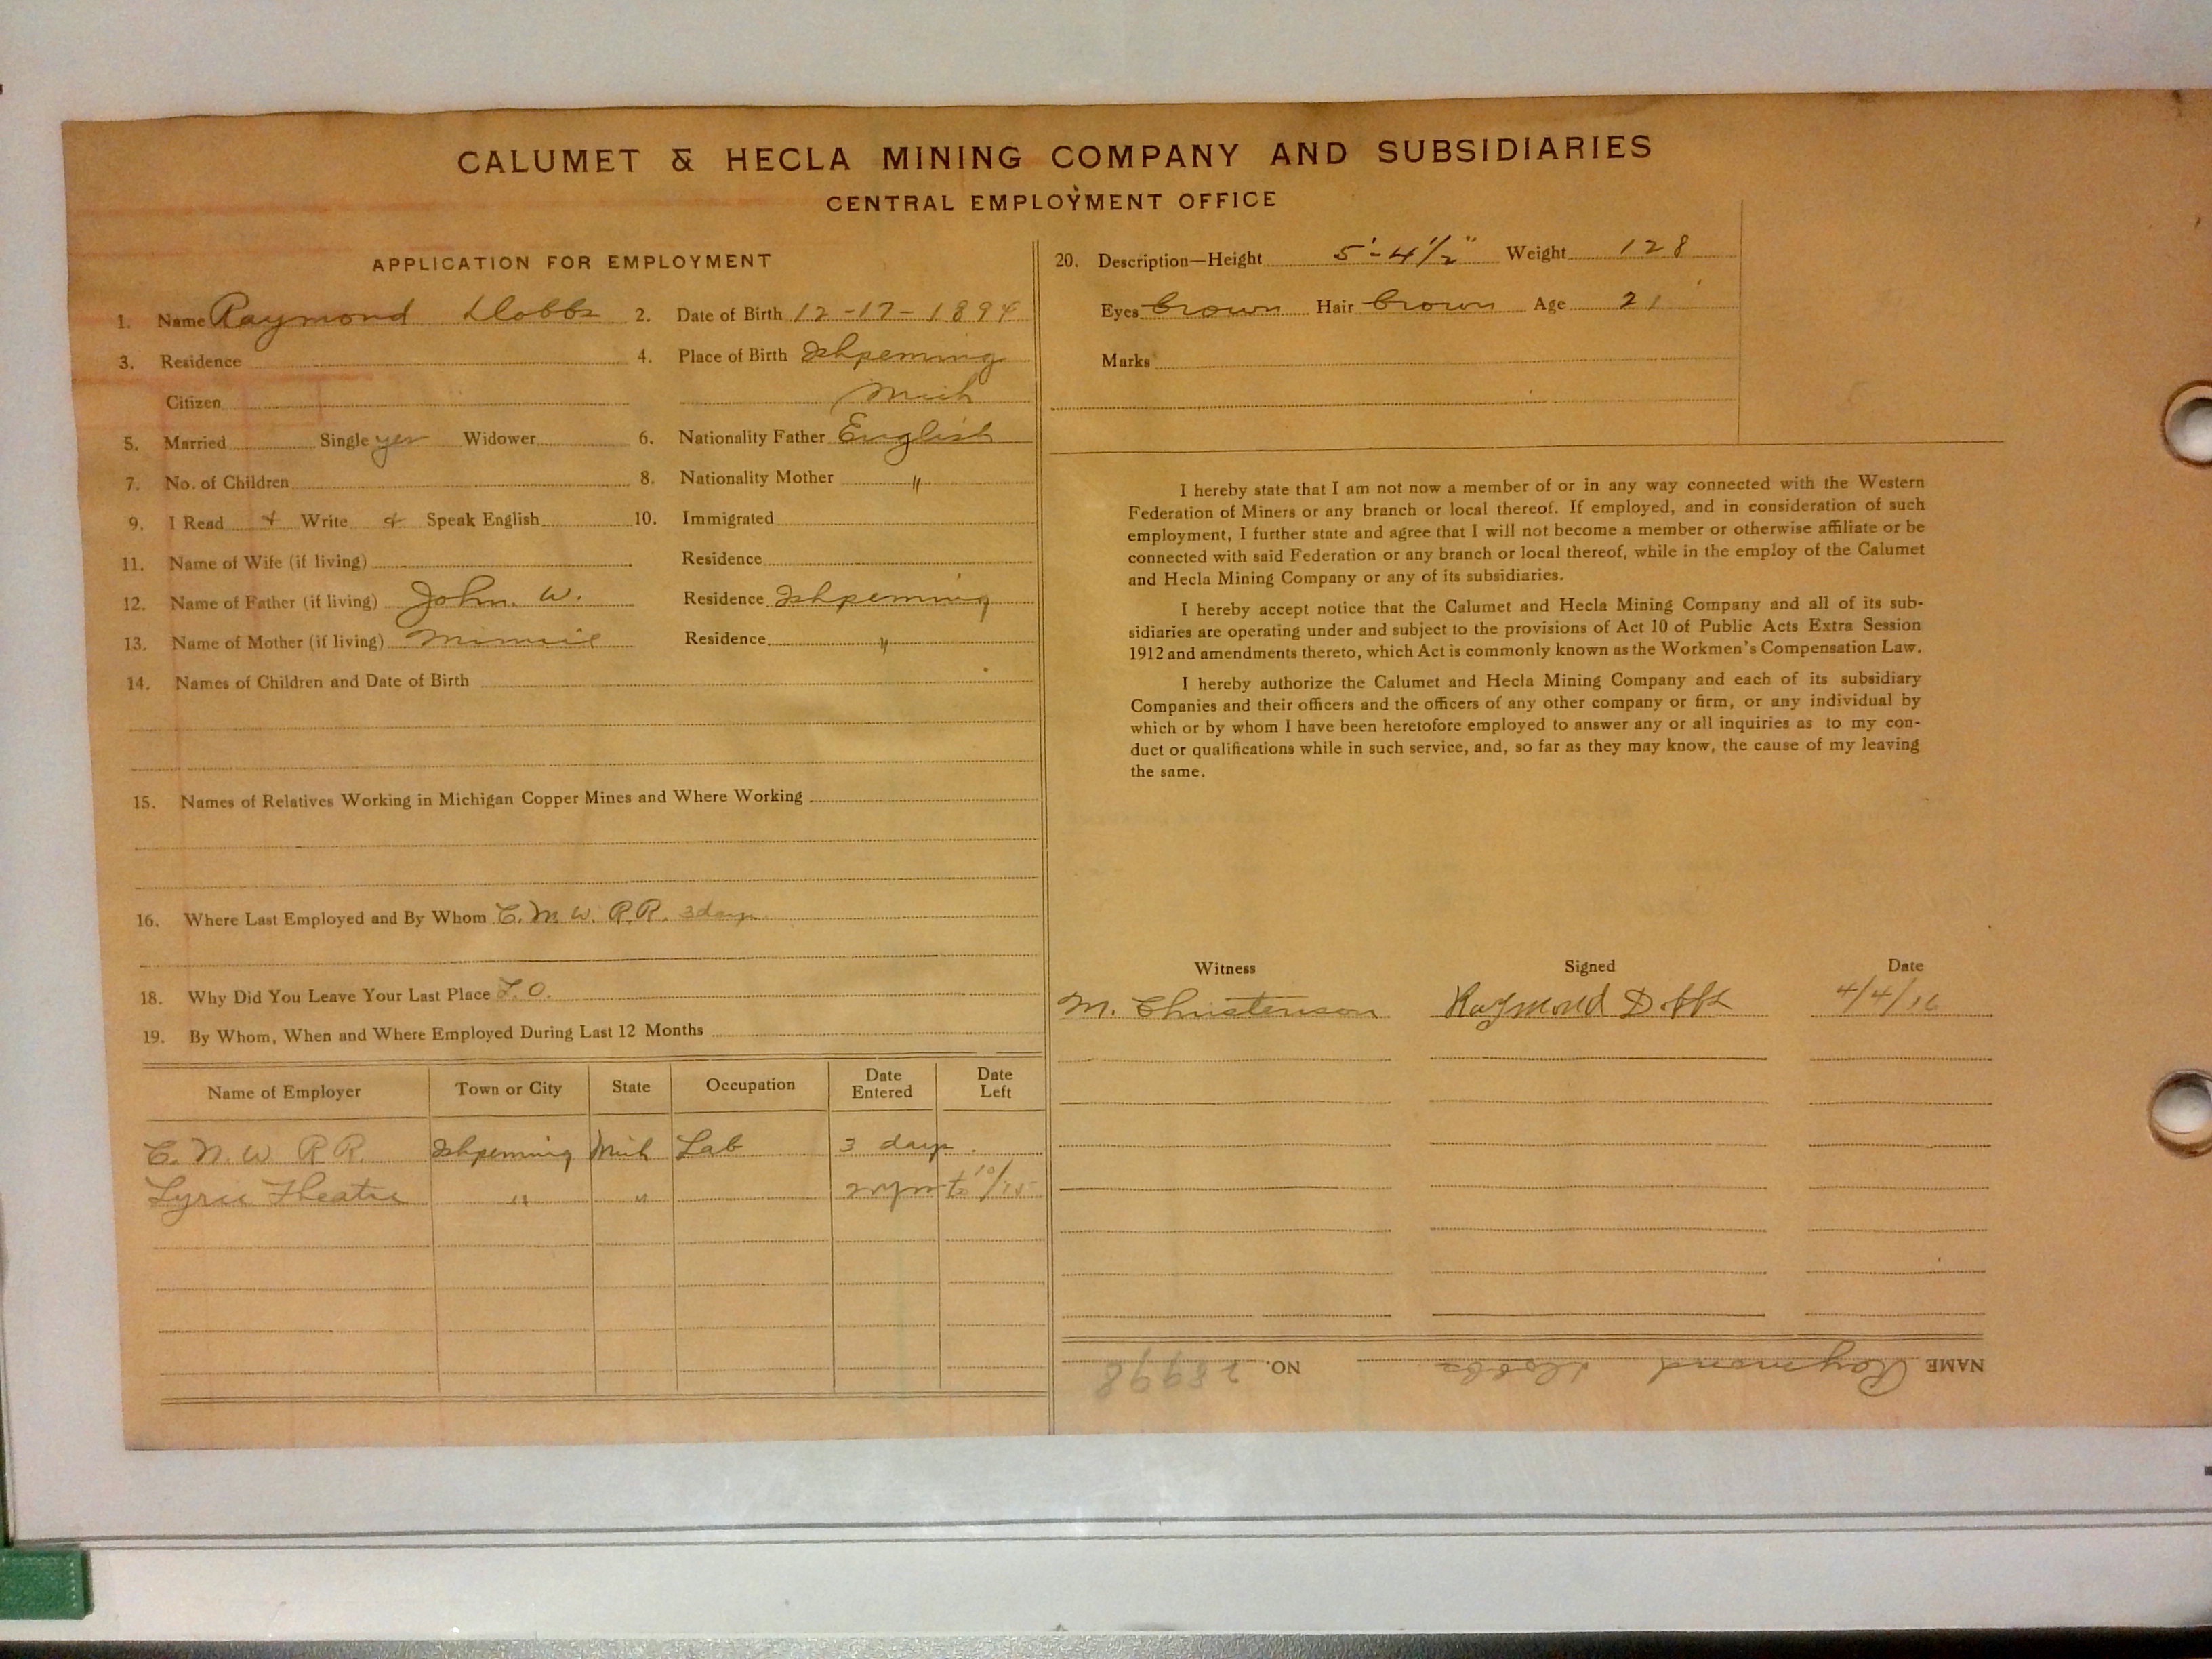 CALUMET & HECLA MINING COMPANY AND SUBSIDIARIES
CENTRAL EMPLOYMENT OFFICE
APPLICATION FOR EMPLOYMENT
1. Name Raymond Dobbs 2. Date of Birth 12-17-1894
3. Residence 4. Place of Birth Ishpeming
Citizen Mich
5. Married Single yes Widower 6. Nationality Father English
7. No. of Children 8. Nationality Mother "
9. I Read & Write & Speak English 10. Immigrated
11. Name of Wife (if living) Residence
12. Name of Father (if living) John. W. Residence Ishpeming
13. Name of Mother (if living) Minnie Residence "
14. Names of Children and Date of Birth
15. Names of Relatives Working in Michigan Copper Mines and Where Working
16. Where Last Employed and By Whom C. M. W. R.R. 3 days
18. Why Did You Leave Your Last Place L.O.
19. By Whom, When and Where Employed During Last 12 Months
Name of Employer Town or City State Occupation Date Entered Date Left
C. N. W R R. Ishpeming Mich Lab 3 days
Lyric Theatre " " to 10/15
20. Description—Height 5'-4½" Weight 128
Eyes brown Hair brown Age 21
Marks
I hereby state that I am not now a member of or in any way connected with the Western
Federation of Miners or any branch or local thereof. If employed, and in consideration of such
employment, I further state and agree that I will not become a member or otherwise affiliate or be
connected with said Federation or any branch or local thereof, while in the employ of the Calumet
and Hecla Mining Company or any of its subsidiaries.
I hereby accept notice that the Calumet and Hecla Mining Company and all of its sub-
sidiaries are operating under and subject to the provisions of Act 10 of Public Acts Extra Session
1912 and amendments thereto, which Act is commonly known as the Workmen's Compensation Law.
I hereby authorize the Calumet and Hecla Mining Company and each of its subsidiary
Companies and their officers and the officers of any other company or firm, or any individual by
which or by whom I have been heretofore employed to answer any or all inquiries as to my con-
duct or qualifications while in such service, and, so far as they may know, the cause of my leaving
the same.
Witness Signed Date
M. Christenson Raymond Dobbs 4/4/16
NAME Raymond Dobbs NO. 28998